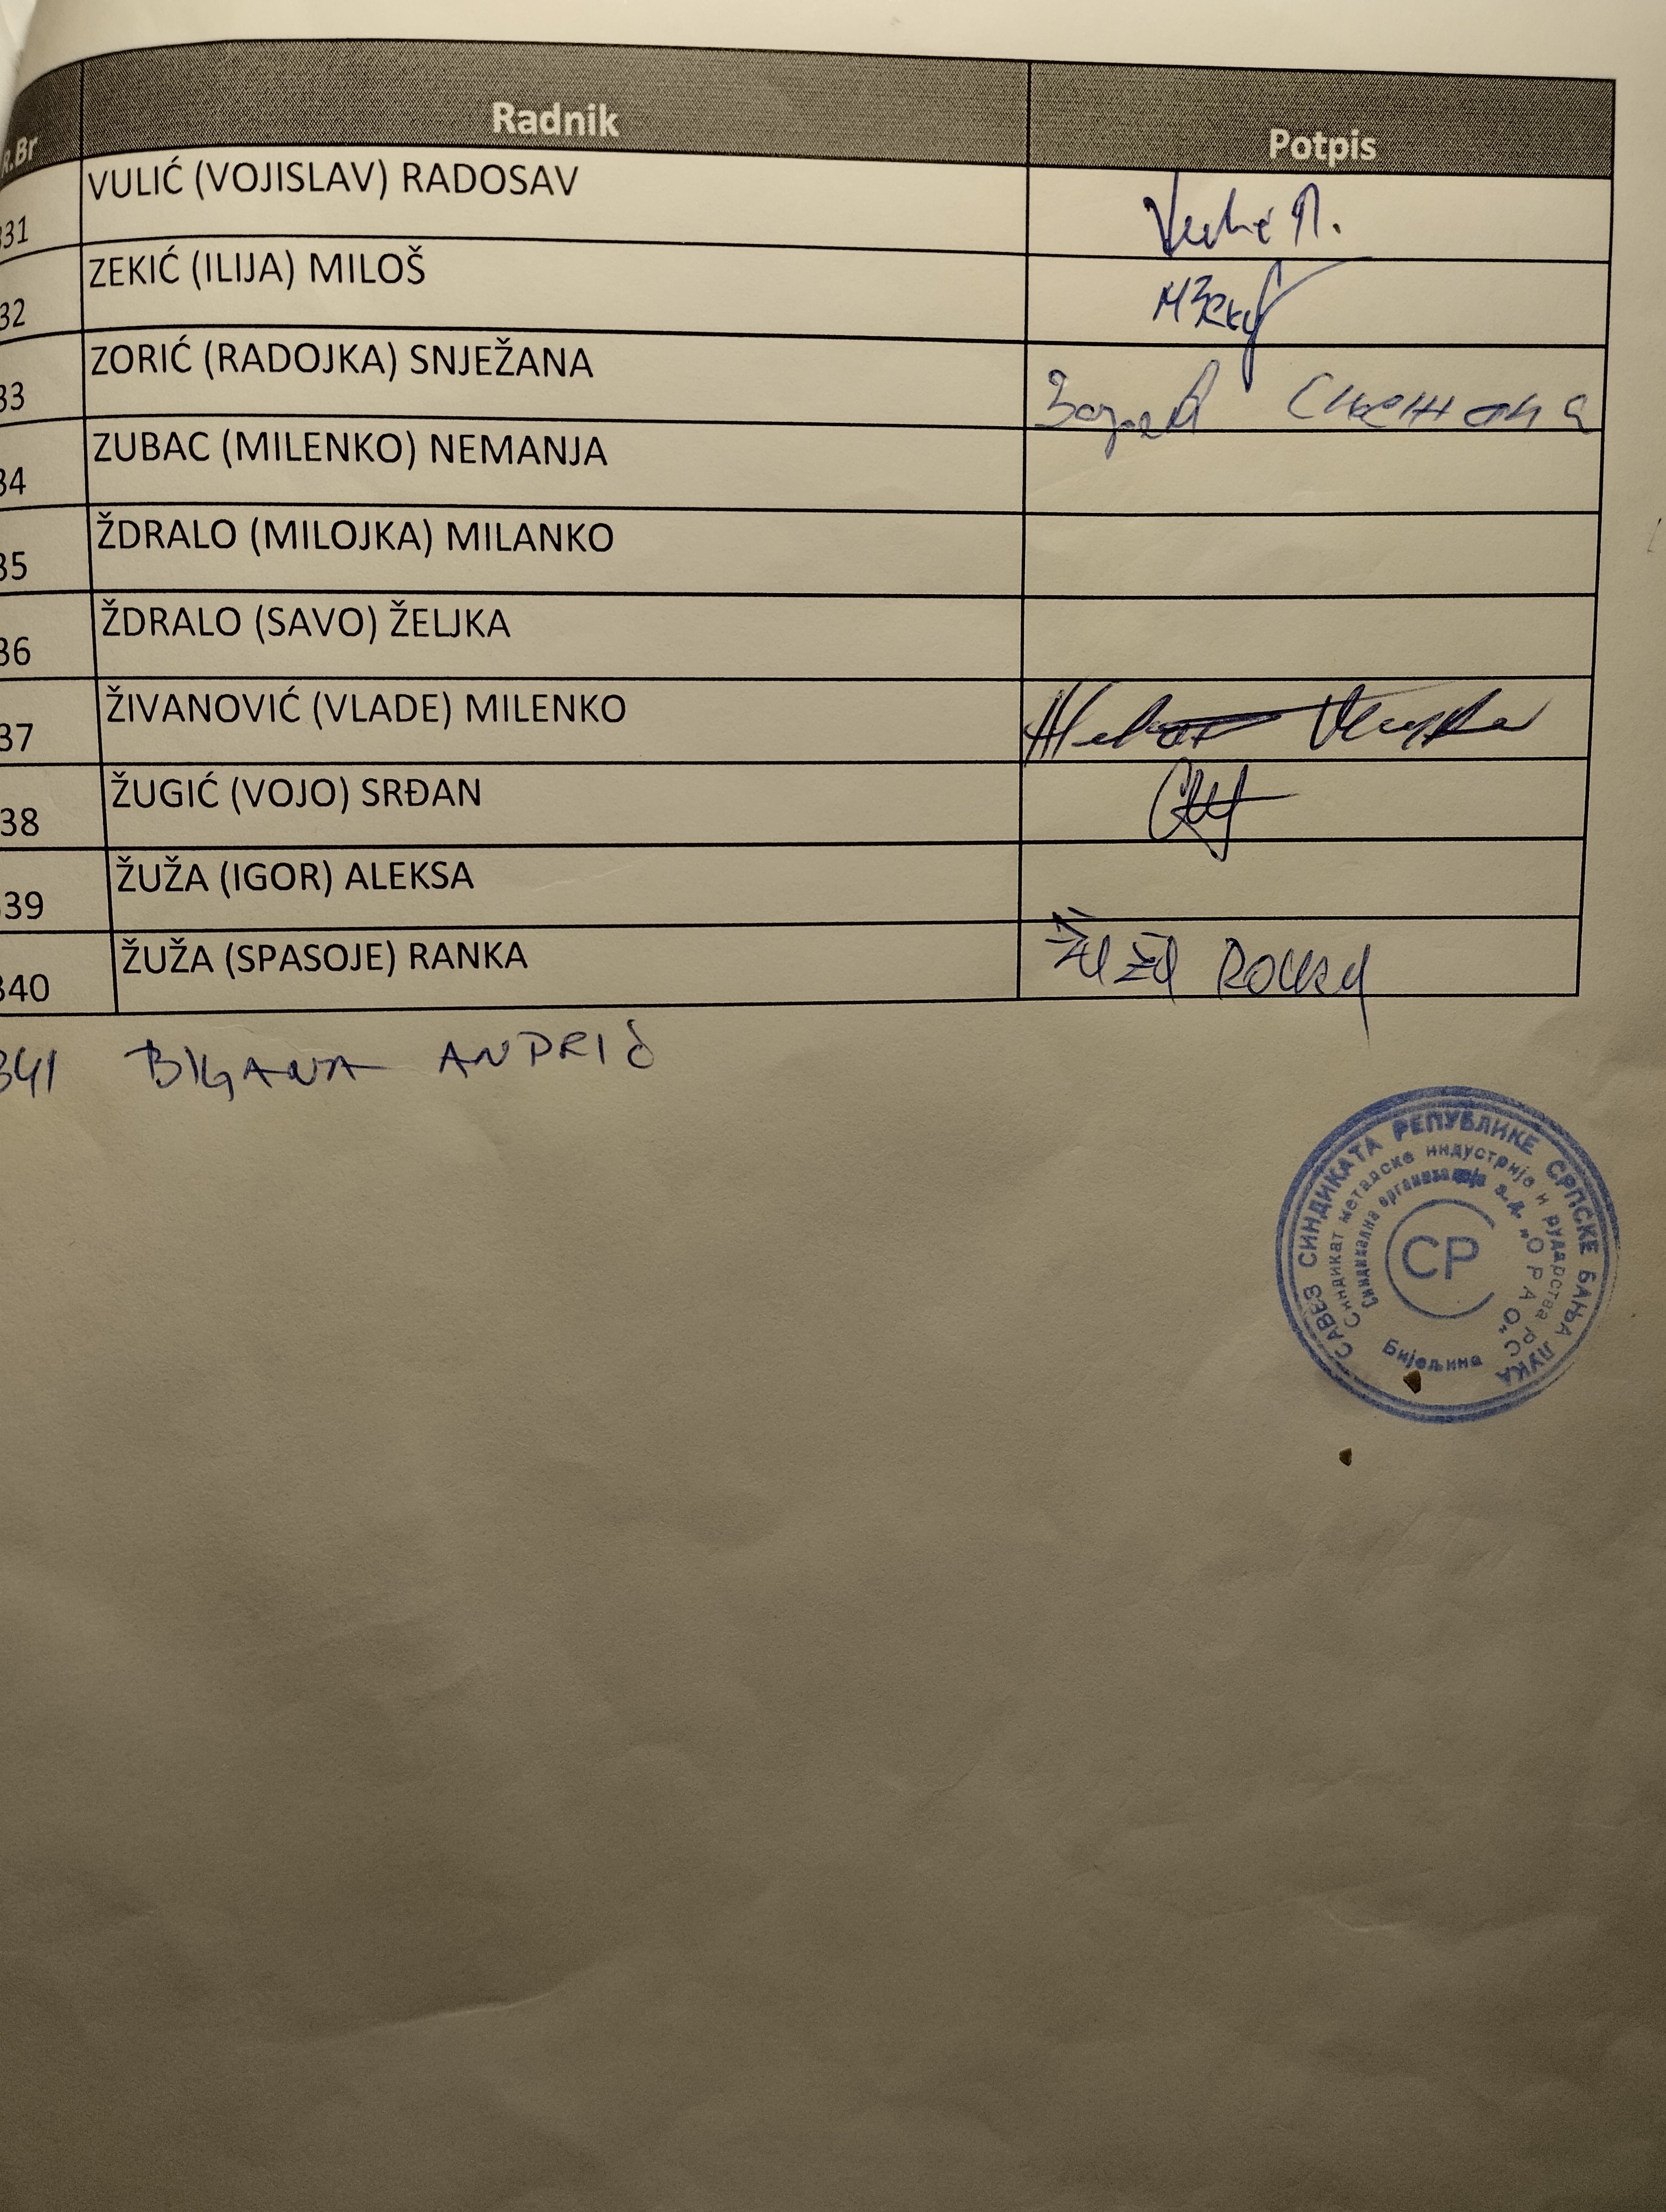 R.Br Radnik Potpis
331 VULIĆ (VOJISLAV) RADOSAV
32 ZEKIĆ (ILIJA) MILOŠ
33 ZORIĆ (RADOJKA) SNJEŽANA
34 ZUBAC (MILENKO) NEMANJA
35 ŽDRALO (MILOJKA) MILANKO
36 ŽDRALO (SAVO) ŽELJKA
37 ŽIVANOVIĆ (VLADE) MILENKO
38 ŽUGIĆ (VOJO) SRĐAN
339 ŽUŽA (IGOR) ALEKSA
340 ŽUŽA (SPASOJE) RANKA
341 ANDRIĆ
САВЕЗ СИНДИКАТА РЕПУБЛИКЕ СРПСКЕ БАЊА ЛУКА
Синдикат металске индустрије и рударства РС
Синдикална организација а.д. „ОРАО"
Бијељина
СР